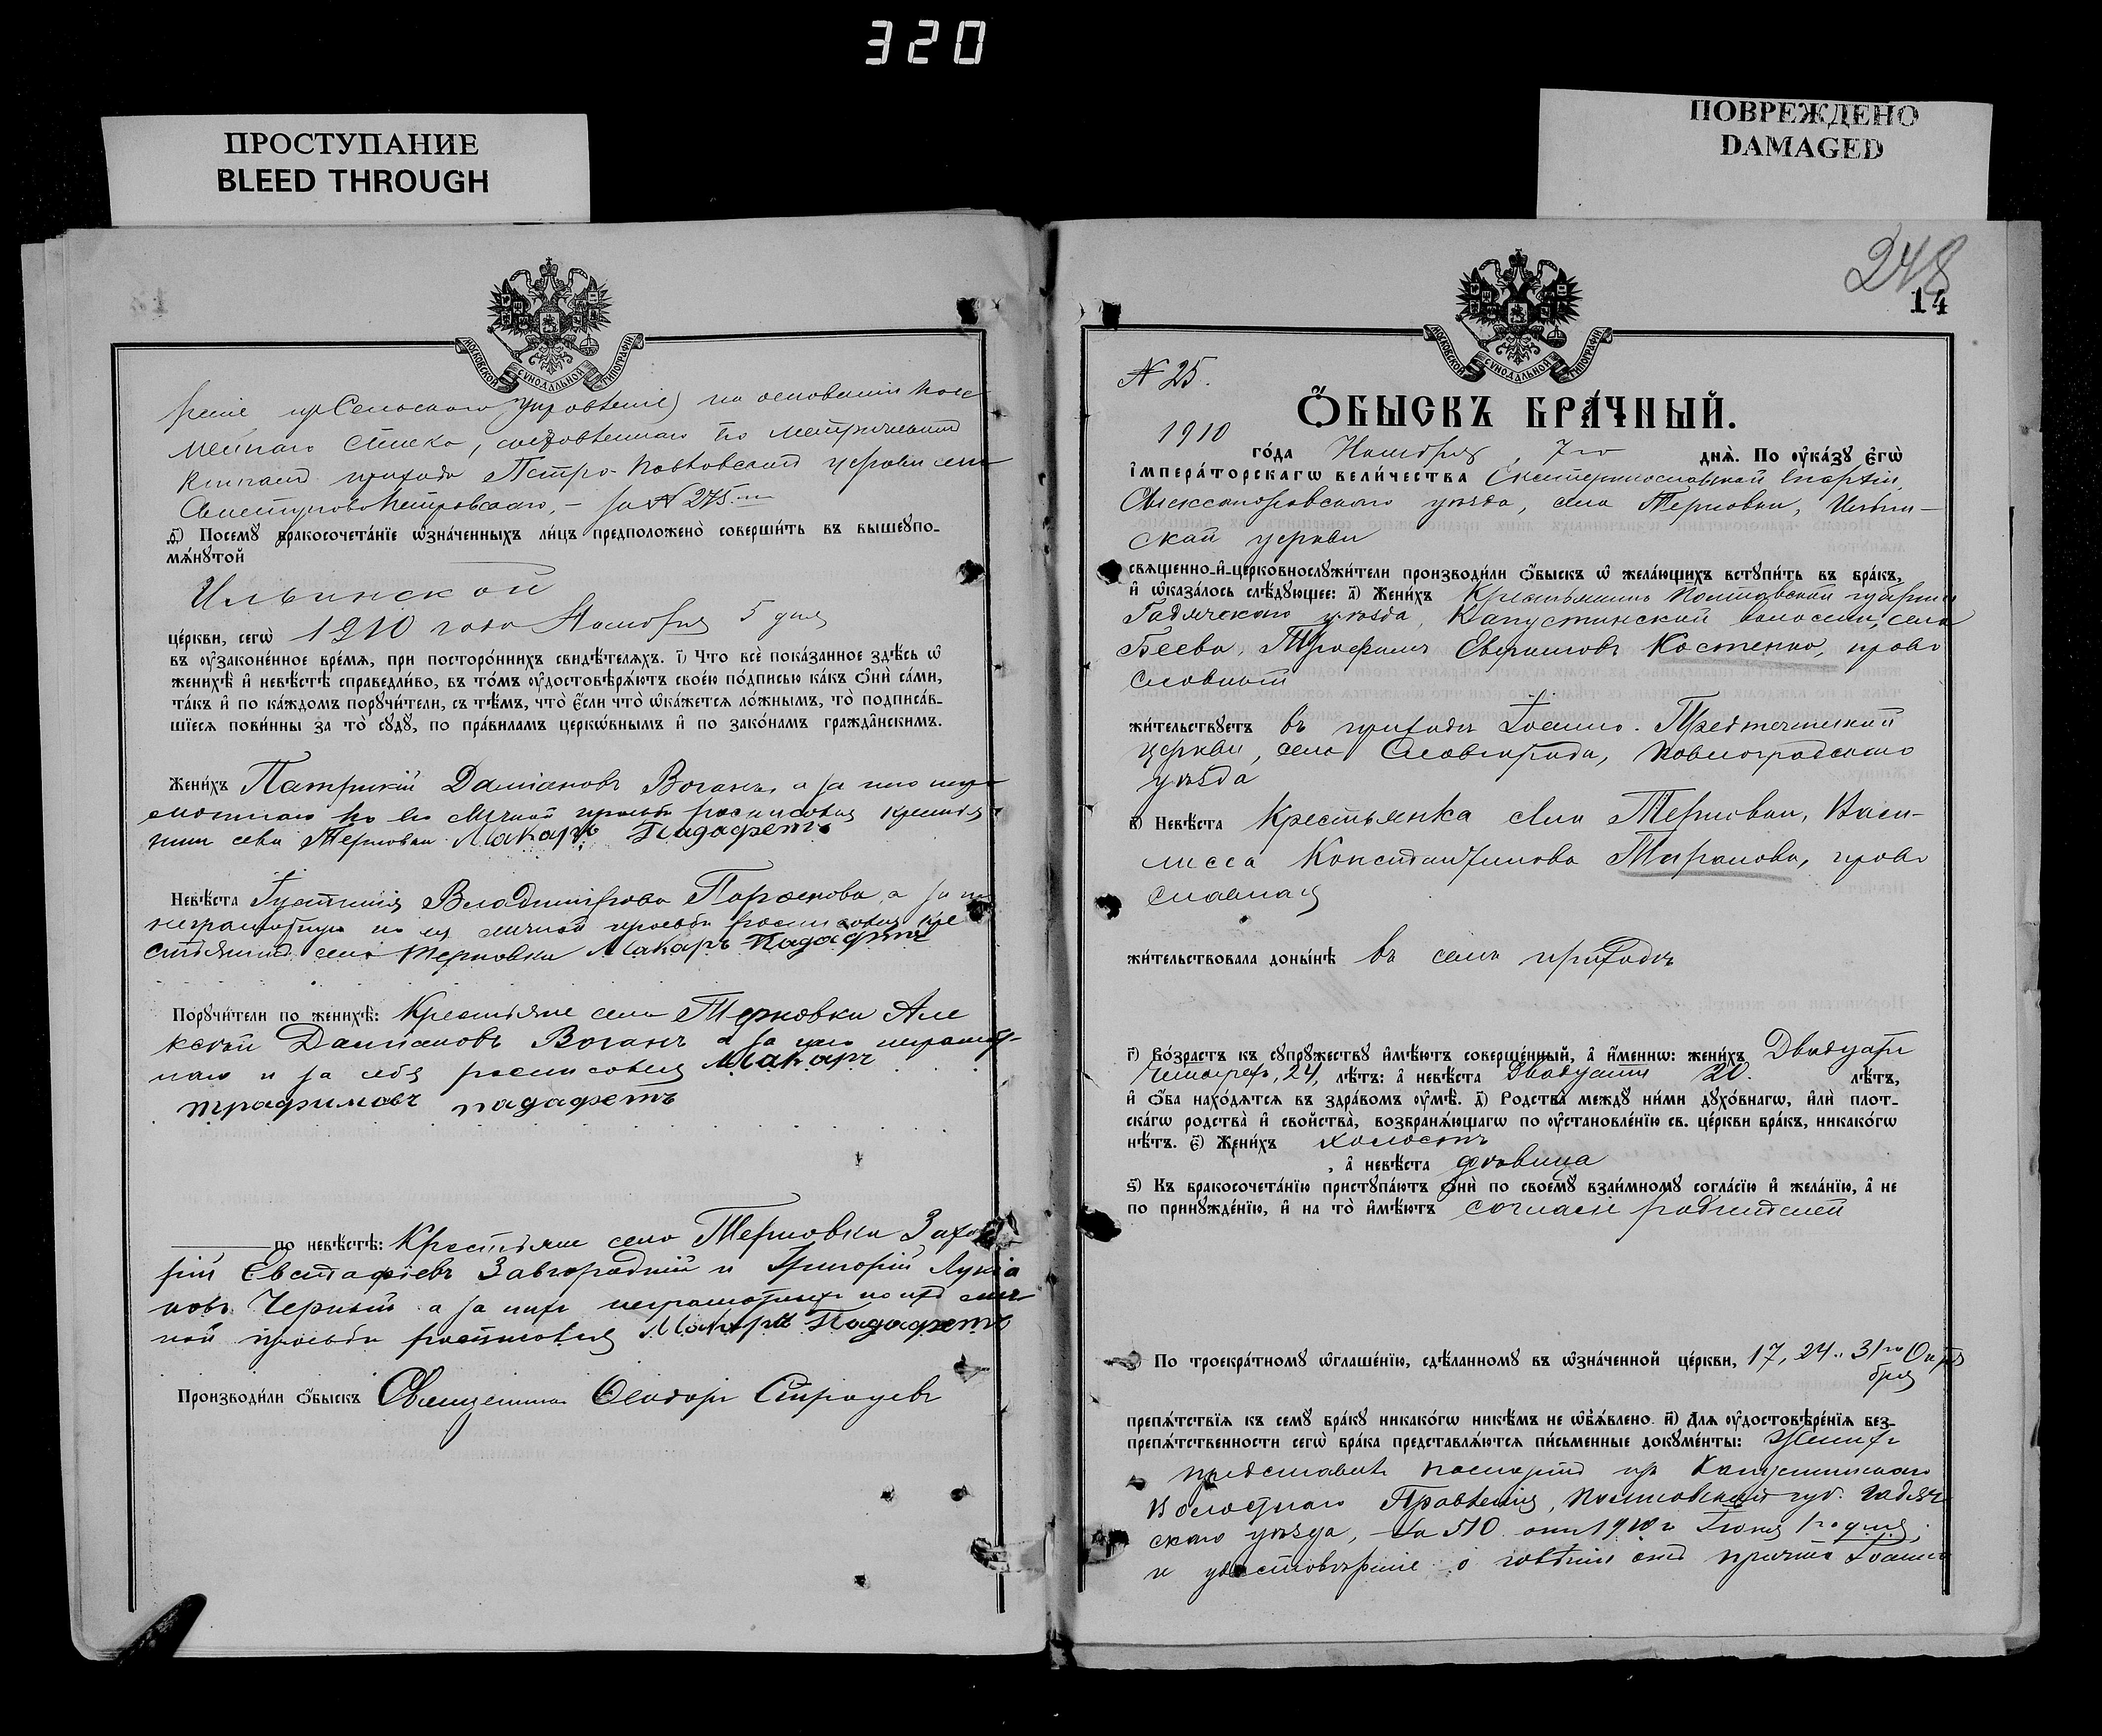 320
ПРОСТУПАНИЕ
BLEED THROUGH
ПОВРЕЖДЕНО
DAMAGED
МОСКОВСКОЙ СѴНОДАЛЬНОЙ ТИПОГРАФІИ
на основаніи
списка,
книгамъ прихода Петро-Павловской церкви села
за № 275
Ѳ҃) Посемꙋ бракосочета́нїе ѡ҆зна́ченныхъ ли́цъ предположено̀ соверши́ть въ вышеꙋпо-
мѧ́нꙋтой
Ильинской
це́ркви, сегѡ̀ 1910 года Ноября 5 дня
въ ᲂу҆зако́ненное вре́мѧ, при посторо́ннихъ свидѣ́телѧхъ. і҃) Что всѐ пока́занное здѣ́сь ѡ҆
женихѣ̀ и҆ невѣ́стѣ справедли́во, въ то́мъ ᲂу҆достовѣрѧ́ютъ свое́ю по́дписью ка́къ ѻ҆нѝ са́ми,
та́къ и҆ по ка́ждомъ порꙋчи́тели, съ тѣ́мъ, что̀ є҆́сли что̀ ѡ҆ка́жетсѧ ло́жнымъ, то̀ подписа́в-
шїесѧ пови́нны за то̀ сꙋдꙋ̀, по пра́виламъ церкѡ́внымъ и҆ по зако́намъ гражда̑нскимъ.
Жени́хъ Патрикій Даміановъ Воганъ, а за него негра-
мотнаго по его личной просьбѣ росписовся крестья-
нинъ села Терновки Макаръ Падафетъ
Невѣ́ста Густинія Владимірова, а за
неграмотную по ея личной просьбѣ росписовся кре
стьянинъ села Терновки Макаръ Падафетъ
Порꙋчи́тели по женихѣ̀: Крестьяне села Терновки Але
ксѣй Даміановъ Воганъ а за него неграмот-
наго и за себя росписовся Макаръ
трафимовъ падафетъ
по невѣ́стѣ: Крестьяне села Терновки Заха
рій Евстафіевъ Завгородній и Григорій Лукіа
новъ Черный а за нихъ неграмотныхъ по ихъ лич-
ной просьбѣ росписовся Макаръ Падафетъ
Производи́ли ѻ҆́быскъ Священникъ Ѳеодоръ
248
14
МОСКОВСКОЙ СѴНОДАЛЬНОЙ ТИПОГРАФІИ
№ 25.
Ѻ҆́БЫСКЪ БРА́ЧНЫЙ.
1910 го́да Ноября, 7го днѧ̀. По ᲂу҆ка́зꙋ є҆гѡ̀
і҆мпера́торскагѡ вели́чества Екатеринославской Епархіи,
Александровскаго уѣзда, села Терновки, Ильин-
ской церкви
сващенно-и҆-церковнослꙋжи́тели производи́ли ѻ҆́быскъ ѡ҆ жела́ющихъ встꙋпи́ть въ бра́къ,
и҆ ѡ҆каза́лось слѣ́дꙋющее: а҃) Жени́хъ Крестьянинъ Полтавской губерніи
Гадячскаго уѣзда, Капустинской волости, села
Беева, Трофимъ Костенко, право
славный
жи́тельствꙋетъ въ приходѣ Іоанно-Предтеченской
церкви, села Славгорода, Павлоградскаго
уѣзда
в҃) Невѣ́ста Крестьянка села Терновки, Васи-
лисса Константинова Таранова, право
славная
жи́тельствовала доны́нѣ въ семъ приходѣ
г҃) Во́зрастъ къ сꙋпрꙋ́жествꙋ и҆мѣ́ютъ соверше́нный, а҆ и҆́меннѡ: жени́хъ Двадцати
четырехъ, 24, лѣ́тъ: а҆ невѣ́ста двадцати 20. лѣ́тъ,
и҆ ѻ҆́ба нахо́дѧтсѧ въ здра́вомъ ᲂу҆мѣ̀. д҃) Родства̀ междꙋ̀ ни́ми дꙋхо́внагѡ, и҆лѝ плот-
ска́гѡ родства̀ и҆ сво́йства, возбранѧ́ющагѡ по ᲂу҆становле́нїю св. це́ркви бра́къ, никако́гѡ
нѣ́тъ. є҃) Жени́хъ холостъ
, а҆ невѣ́ста дѣвица
ѕ҃) Къ бракосочета́нїю пристꙋпа́ютъ ѻ҆нѝ по своемꙋ̀ взаи́мномꙋ согла́сїю и҆ жела́нїю, а҆ не
по принꙋжде́нїю, и҆ на то̀ и҆мѣ́ютъ согласіе родителей
По троекра́тномꙋ ѡ҆глаше́нїю, сдѣ́ланномꙋ въ ѡ҆зна́ченной це́ркви, 17, 24 и 31го Октя
бря
препѧ́тствїѧ къ семꙋ̀ бра́кꙋ никако́гѡ никѣ́мъ не ѡ҆б̾ѧ́влено. и҃) Длѧ ᲂу҆достовѣре́нїѧ без-
препѧ́тственности сегѡ̀ бра́ка представлѧ́ютсѧ пи́сьменные докꙋме́нты: Женихъ
представилъ паспортъ изъ Капустинскаго
Волостного Правленія, Полтавской губ. Гадяч
скаго уѣзда, за 510 отъ 1910 г. Іюня 1го дня,
и удостовѣреніе о говѣніи отъ причта Іоанно